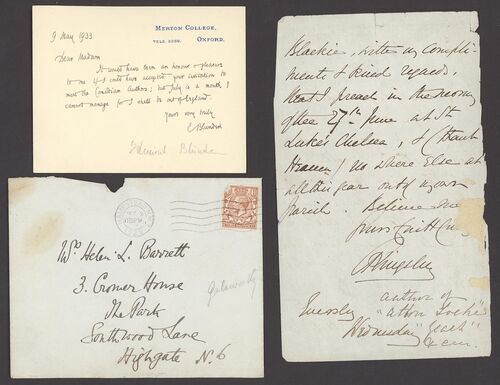 MERTON COLLEGE,
TELE. 2259. OXFORD.
9 May 1933
Dear Madam
It would have been an honour & pleasure
to me if I could have accepted your invitation to
meet the Canadian Authors; but July is a month I
cannot manage for I shall be out of England.
Yours very truly
E Blunden
Edmund Blunden
Mrs Helen L. Barrett
3. Cromer House
The Park
Southwood Lane
Highgate N.6
Galsworthy
Blackie, with my compli-
ments & kind regards,
that I preach in the morning
of the 27th June at St
Luke's Chelsea, & (thank
Heaven!) no where else at
all this year out of my own
parish. Believe me
yours faithfully
C Kingsley
Eversley author of
Wednesday "Alton Locke"
"Yeast"